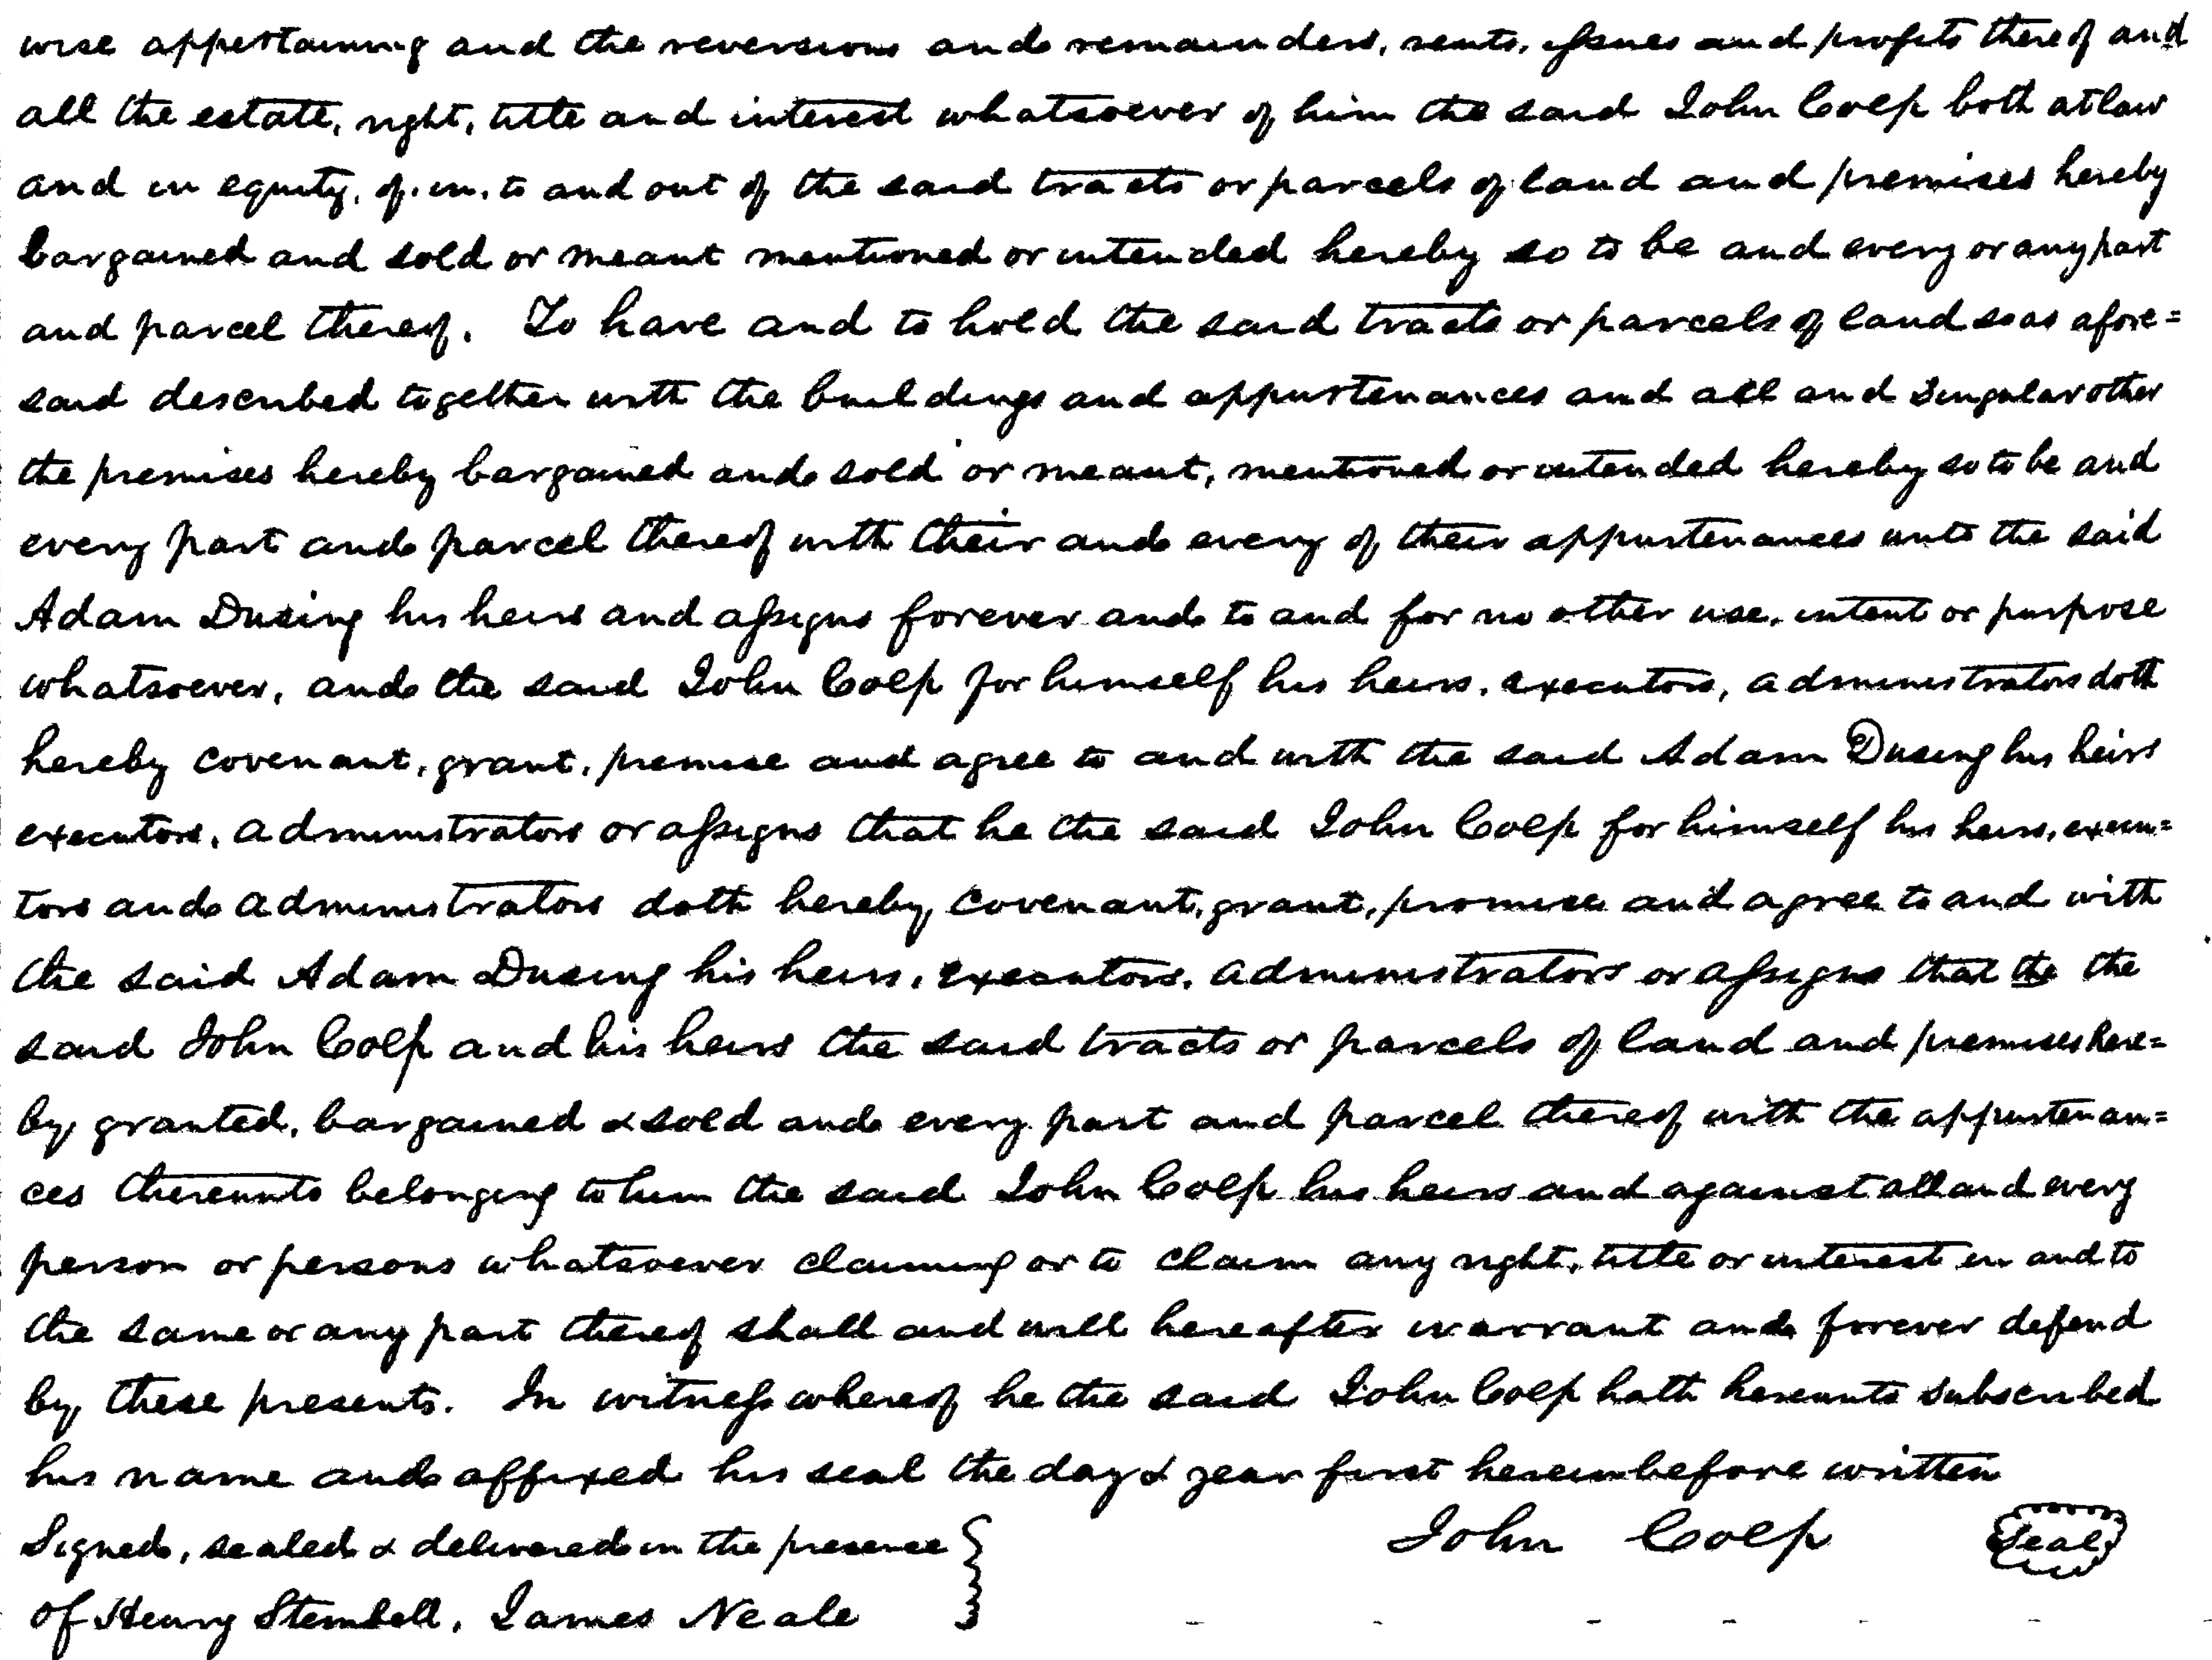 wise appertaining and the reversions and remainders, rents, issues and profits thereof and
all the estate, right, title and interest whatsoever of him the said John Colp both at law
and in equity, of, in, to and out of the said tracts or parcels of land and premises hereby
bargained and sold or meant mentioned or intended hereby so to be and every or any part
and parcel thereof. To have and to hold the said tracts or parcels of land so as afore=
said described together with the buildings and appurtenances and all and singular other
the premises hereby bargained and sold or meant, mentioned or intended hereby so to be and
every part and parcel thereof with their and every of their appurtenances unto the said
Adam Dusing his heirs and assigns forever and to and for no other use, intent or purpose
whatsoever, and the said John Colp for himself his heirs, executors, administrators doth
hereby covenant, grant, premise and agree to and with the said Adam Dusing his heirs
executors, administrators or assigns that he the said John Colp for himself his heirs, execu=
tors and administrators doth hereby covenant, grant, promise and agree to and with
the said Adam Dusing his heirs, executors, administrators or assigns that the the
said John Colp and his heirs the said tracts or parcels of land and premises here=
by granted, bargained & sold and every part and parcel thereof with the appurtenan=
ces thereunto belonging to him the said John Colp his heirs and against all and every
person or persons whatsoever claiming or to claim any right, title or interest in and to
the same or any part thereof shall and will hereafter warrant and forever defend
by these presents. In witness whereof he the said John Colp hath hereunto subscribed
his name and affixed his seal the day & year first hereinbefore written
Signed, sealed & delivered in the presence John Colp Seal
of Henry Stembell, James Neale